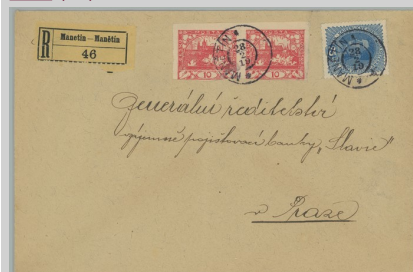 R Manetin—Manětín
46
MANĚTÍN
28
2
19
10 10
MANĚTÍN
28
2
19
Generální ředitelství
vzájemné pojišťovací banky „Slavie"
v Praze